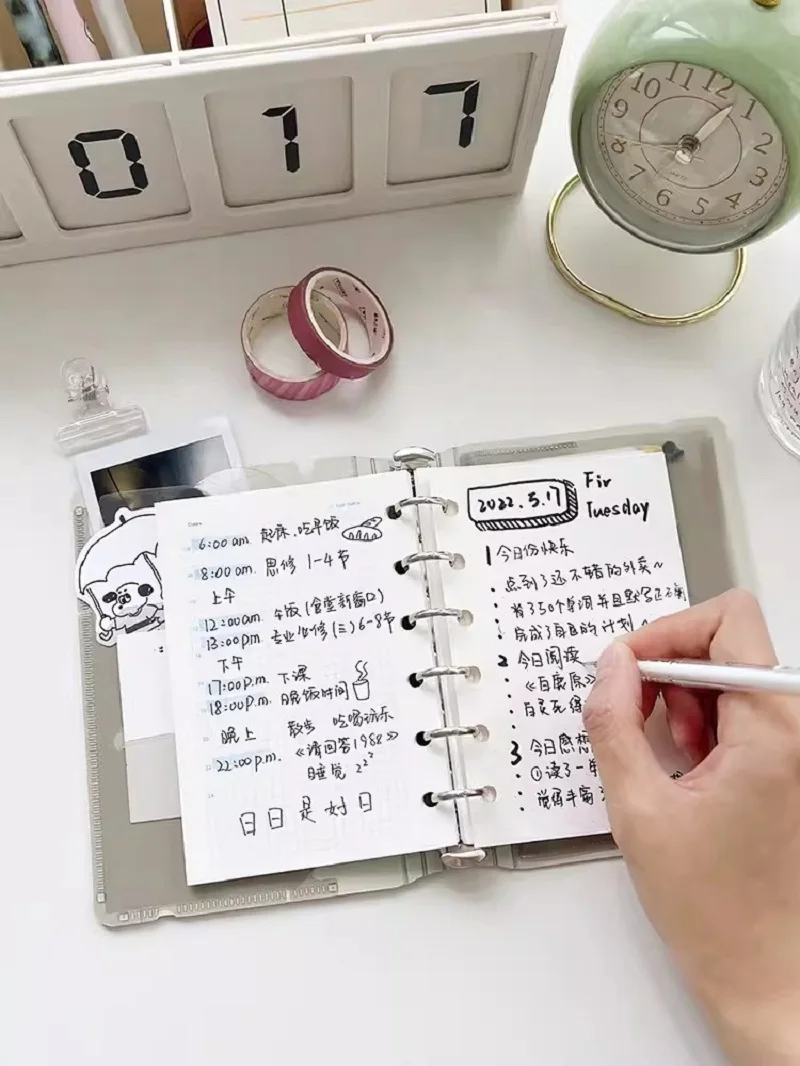 0 1 7
10 11 12 1 2 3 4 5 6 7 8 9
6:00 am. 起床、吃早饭
8:00 am. 思修 1-4节
上午
12:00am. 午饭(食堂新窗口)
13:00p.m. 专业必修(三)6-8节
下午
17:00P.m. 下课
18:00P.m. 晚饭时间
晚上 散步 吃喝玩乐
《请回答1988》
22:00p.m. 睡觉 zzz
日日是好日
2022.5.17
Fir
Tuesday
1 今日份快乐
· 点到了还不错的外卖~
· 背了50个单词并且默写
· 完成了自己的计划
2 今日阅读
3 今日感想
· ①读了一